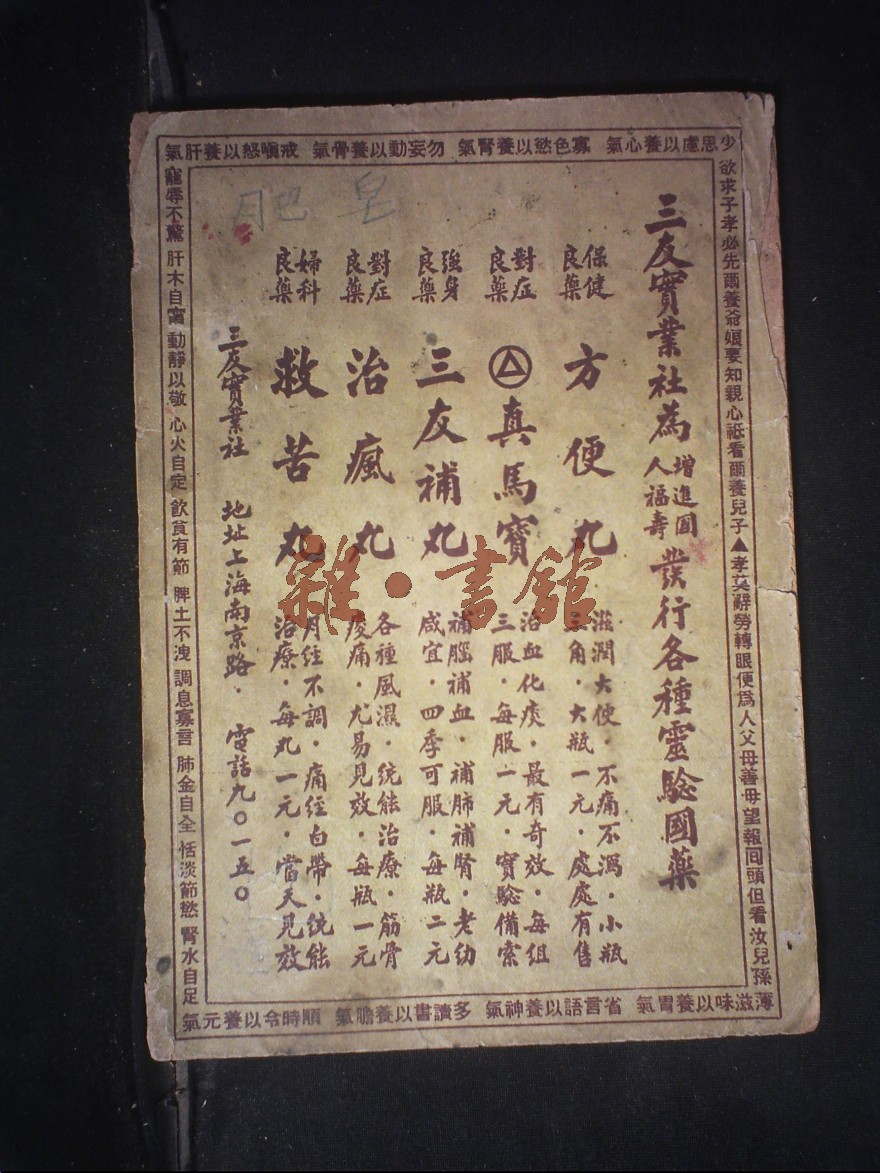 少思慮以養心氣 寡色慾以養腎氣 勿妄動以養骨氣 戒嗔怒以養肝氣
薄滋味以養胃氣 省言語以養神氣 多讀書以養膽氣 順時令以養元氣
欲求子孝必先爾養爺娘要知親心祇看爾養兒子▲孝莫辭勞轉眼便爲人父母善毋望報囘頭但看汝兒孫
寵辱不驚 肝木自寧 動靜以敬 心火自定 飲食有節 脾土不洩 調息寡言 肺金自全 恬淡節慾 腎水自足
肥皂
三友實業社為增進國人福壽發行各種靈驗國藥
保健良藥 方便丸 滋潤大便·不痛不瀉·小瓶三角·大瓶一元·處處有售
對症良藥 真馬寶 治血化痰·最有奇效·每組三服·每服一元·實驗備索
強身良藥 三友補丸 補腦補血·補肺補腎·老幼咸宜·四季可服·每瓶二元
對症良藥 治瘋丸 各種風濕·統能治療·筋骨痠痛·尤易見效·每瓶一元
婦科良藥 救苦丸 月經不調·痛經白帶·統能治療·每丸一元·當天見效
三友實業社 地址上海南京路· 電話九〇一五〇
雜·書館